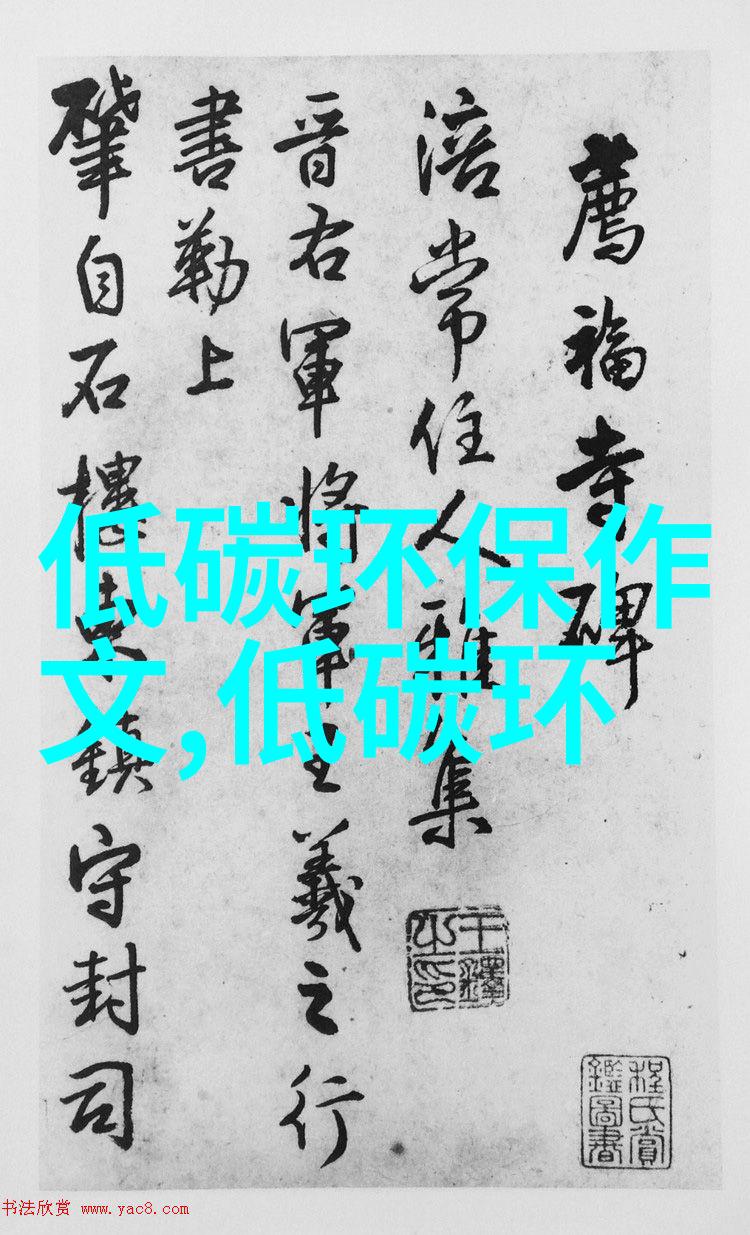 薦福寺碑
涪常住人雅集
晉右軍將軍王羲之行
書勒上
肇自石樓鎮守封司
低碳环保作
文,低碳环
王鐸之印
程氏賞鑑圖書
书法欣赏 www.yac8.com